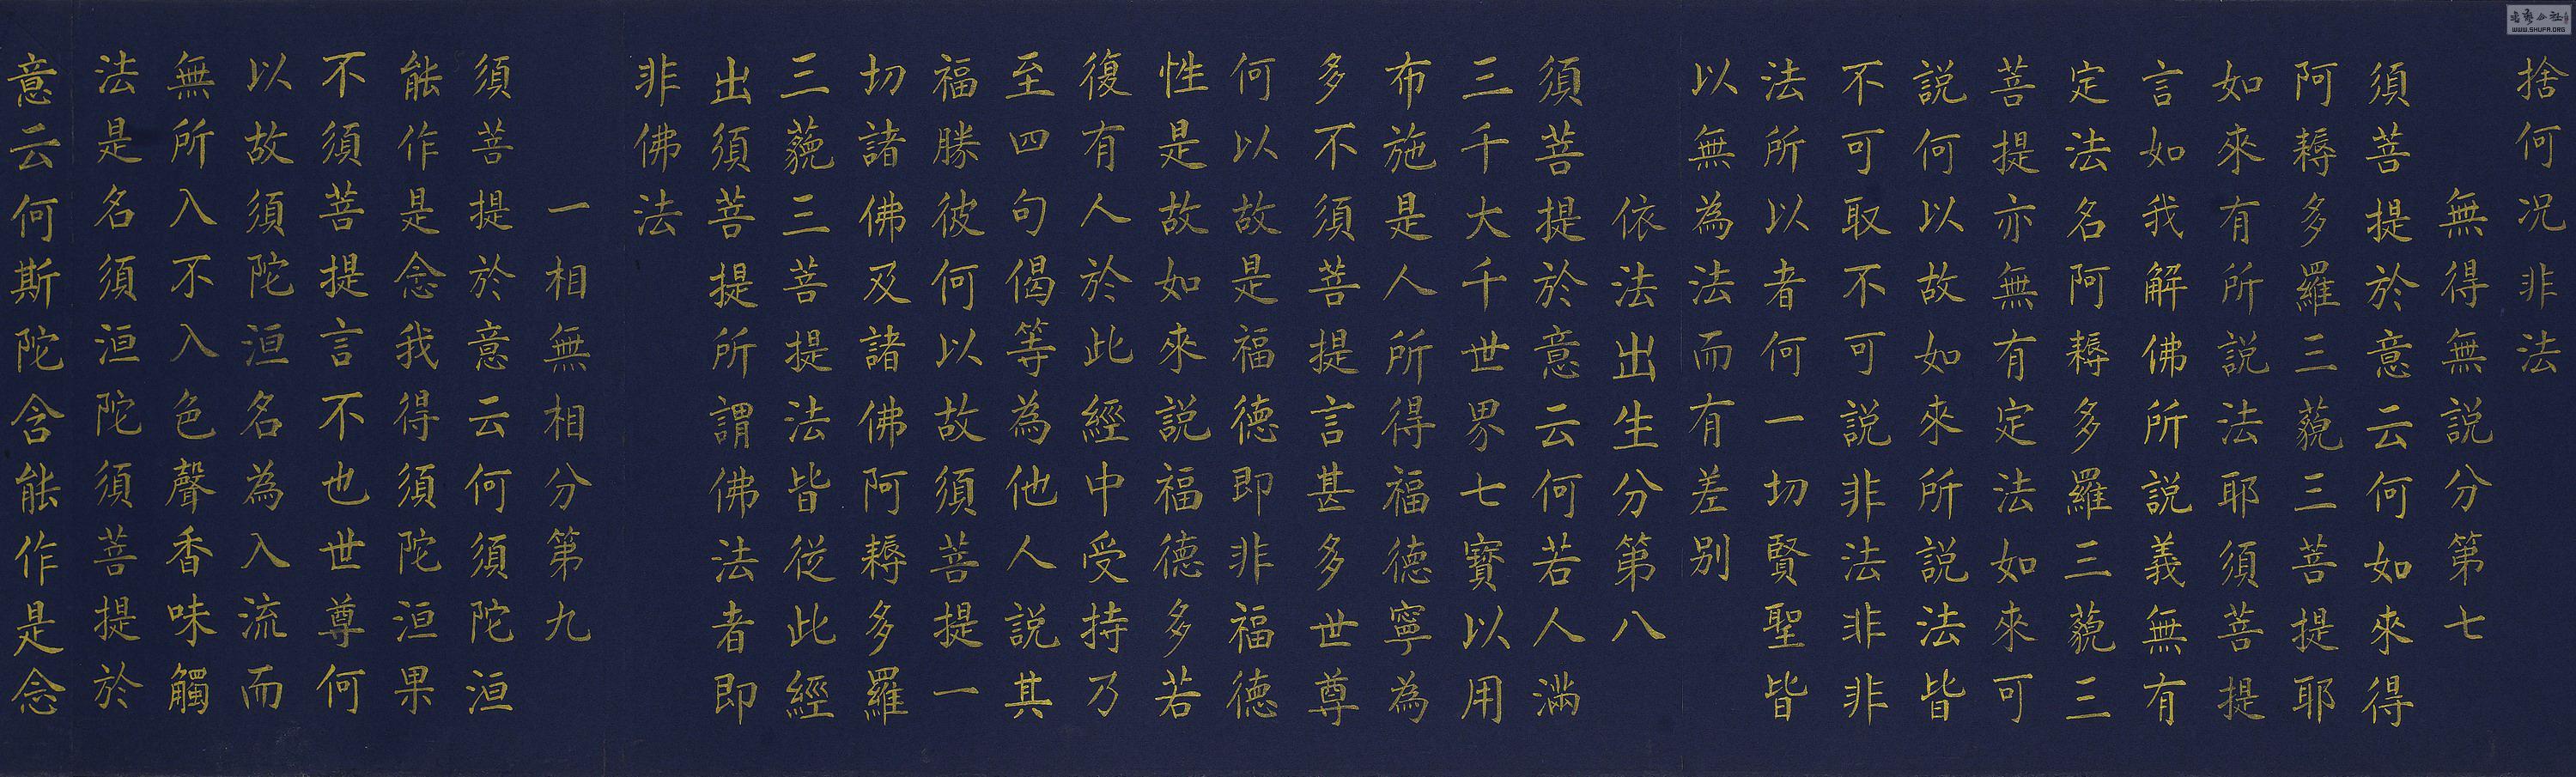 捨何况非法
無得無説分第七
須菩提於意云何如來得
阿耨多羅三藐三菩提耶
如來有所説法耶須菩提
言如我解佛所説義無有
定法名阿耨多羅三藐三
菩提亦無有定法如來可
説何以故如來所説法皆
不可取不可説非法非非
法所以者何一切賢聖皆
以無為法而有差别
依法出生分第八
須菩提於意云何若人滿
三千大千世界七寶以用
布施是人所得福德寧為
多不須菩提言甚多世尊
何以故是福德即非福德
性是故如來説福德多若
復有人於此經中受持乃
至四句偈等為他人説其
福勝彼何以故須菩提一
切諸佛及諸佛阿耨多羅
三藐三菩提法皆從此經
出須菩提所謂佛法者即
非佛法
一相無相分第九
須菩提於意云何須陀洹
能作是念我得須陀洹果
不須菩提言不也世尊何
以故須陀洹名為入流而
無所入不入色聲香味觸
法是名須洹陀須菩提於
意云何斯陀含能作是念
WWW.SHUFA.ORG